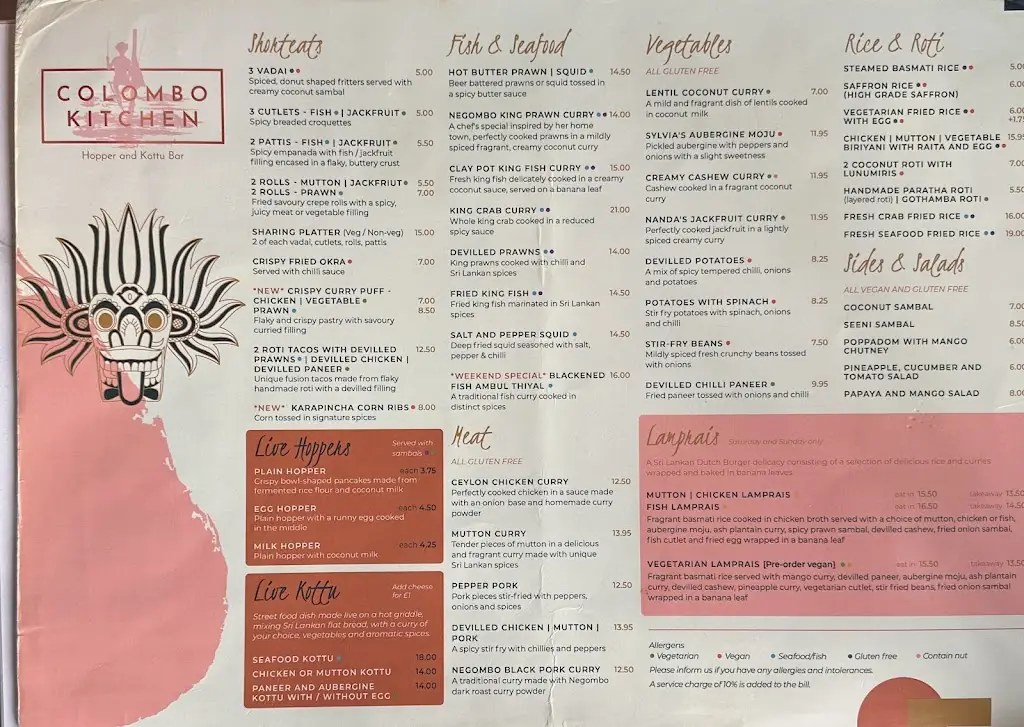 COLOMBO
KITCHEN
Hopper and Kottu Bar
Shorteats
3 VADAI 5.00
Spiced, donut shaped fritters served with
creamy coconut sambal
3 CUTLETS - FISH | JACKFRUIT 5.00
Spicy breaded croquettes
2 PATTIS - FISH | JACKFRUIT 5.50
Spicy empanada with fish / jackfruit
filling encased in a flaky, buttery crust
2 ROLLS - MUTTON | JACKFRIUT 5.50
2 ROLLS - PRAWN 7.00
Fried savoury crepe rolls with a spicy,
juicy meat or vegetable filling
SHARING PLATTER (Veg / Non-veg) 15.00
2 of each vadai, cutlets, rolls, pattis
CRISPY FRIED OKRA 7.00
Served with chilli sauce
*NEW* CRISPY CURRY PUFF -
CHICKEN | VEGETABLE 7.00
PRAWN 8.50
Flaky and crispy pastry with savoury
curried filling
2 ROTI TACOS WITH DEVILLED 12.50
PRAWNS | DEVILLED CHICKEN |
DEVILLED PANEER
Unique fusion tacos made from flaky
handmade roti with a devilled filling
*NEW* KARAPINCHA CORN RIBS 8.00
Corn tossed in signature spices
Live Hoppers
Served with
sambals
PLAIN HOPPER each 3.75
Crispy bowl-shaped pancakes made from
fermented rice flour and coconut milk
EGG HOPPER each 4.50
Plain hopper with a runny egg cooked
in the middle
MILK HOPPER each 4.25
Plain hopper with coconut milk
Live Kottu
Add cheese
for £1
Street food dish made live on a hot griddle,
mixing Sri Lankan flat bread, with a curry of
your choice, vegetables and aromatic spices.
SEAFOOD KOTTU 18.00
CHICKEN OR MUTTON KOTTU 14.00
PANEER AND AUBERGINE 14.00
KOTTU WITH / WITHOUT EGG
Fish & Seafood
HOT BUTTER PRAWN | SQUID 14.50
Beer battered prawns or squid tossed in
a spicy butter sauce
NEGOMBO KING PRAWN CURRY 14.00
A chef's special inspired by her home
town, perfectly cooked prawns in a mildly
spiced fragrant, creamy coconut curry
CLAY POT KING FISH CURRY 15.00
Fresh king fish delicately cooked in a creamy
coconut sauce, served on a banana leaf
KING CRAB CURRY 21.00
Whole king crab cooked in a reduced
spicy sauce
DEVILLED PRAWNS 14.00
King prawns cooked with chilli and
Sri Lankan spices
FRIED KING FISH 14.50
Fried king fish marinated in Sri Lankan
spices
SALT AND PEPPER SQUID 14.50
Deep fried squid seasoned with salt,
pepper & chilli
*WEEKEND SPECIAL* BLACKENED 16.00
FISH AMBUL THIYAL
A traditional fish curry cooked in
distinct spices
Meat
ALL GLUTEN FREE
CEYLON CHICKEN CURRY 12.50
Perfectly cooked chicken in a sauce made
with an onion base and homemade curry
powder
MUTTON CURRY 13.95
Tender pieces of mutton in a delicious
and fragrant curry made with unique
Sri Lankan spices
PEPPER PORK 12.50
Pork pieces stir-fried with peppers,
onions and spices
DEVILLED CHICKEN | MUTTON | 13.95
PORK
A spicy stir fry with chillies and peppers
NEGOMBO BLACK PORK CURRY 12.50
A traditional curry made with Negombo
dark roast curry powder
Vegetables
ALL GLUTEN FREE
LENTIL COCONUT CURRY 7.00
A mild and fragrant dish of lentils cooked
in coconut milk
SYLVIA'S AUBERGINE MOJU 11.95
Pickled aubergine with peppers and
onions with a slight sweetness
CREAMY CASHEW CURRY 11.95
Cashew cooked in a fragrant coconut
curry
NANDA'S JACKFRUIT CURRY 11.95
Perfectly cooked jackfruit in a lightly
spiced creamy curry
DEVILLED POTATOES 8.25
A mix of spicy tempered chilli, onions
and potatoes
POTATOES WITH SPINACH 8.25
Stir fry potatoes with spinach, onions
and chilli
STIR-FRY BEANS 7.50
Mildly spiced fresh crunchy beans tossed
with onions
DEVILLED CHILLI PANEER 9.95
Fried paneer tossed with onions and chilli
Rice & Roti
STEAMED BASMATI RICE 5.00
SAFFRON RICE 6.00
(HIGH GRADE SAFFRON)
VEGETARIAN FRIED RICE 6.00
WITH EGG +1.75
CHICKEN | MUTTON | VEGETABLE 15.95
BIRIYANI WITH RAITA AND EGG
2 COCONUT ROTI WITH 7.00
LUNUMIRIS
HANDMADE PARATHA ROTI 5.50
(layered roti) | GOTHAMBA ROTI
FRESH CRAB FRIED RICE 16.00
FRESH SEAFOOD FRIED RICE 19.00
Sides & Salads
ALL VEGAN AND GLUTEN FREE
COCONUT SAMBAL 7.00
SEENI SAMBAL 8.50
POPPADOM WITH MANGO 6.00
CHUTNEY
PINEAPPLE, CUCUMBER AND 6.00
TOMATO SALAD
PAPAYA AND MANGO SALAD 8.00
Lamprais
Saturday and Sunday only
A Sri Lankan Dutch Burger delicacy consisting of a selection of delicious rice and curries
wrapped and baked in banana leaves
MUTTON | CHICKEN LAMPRAIS eat in 15.50 takeaway 13.50
FISH LAMPRAIS eat in 16.50 takeaway 14.50
Fragrant basmati rice cooked in chicken broth served with a choice of mutton, chicken or fish,
aubergine moju, ash plantain curry, spicy prawn sambal, devilled cashew, fried onion sambal,
fish cutlet and fried egg wrapped in a banana leaf
VEGETARIAN LAMPRAIS [Pre-order vegan] eat in 15.50 takeaway 13.50
Fragrant basmati rice served with mango curry, devilled paneer, aubergine moju, ash plantain
curry, devilled cashew, pineapple curry, vegetarian cutlet, stir fried beans, fried onion sambal
wrapped in a banana leaf
Allergens
Vegetarian Vegan Seafood/fish Gluten free Contain nut
Please inform us if you have any allergies and intolerances.
A service charge of 10% is added to the bill.